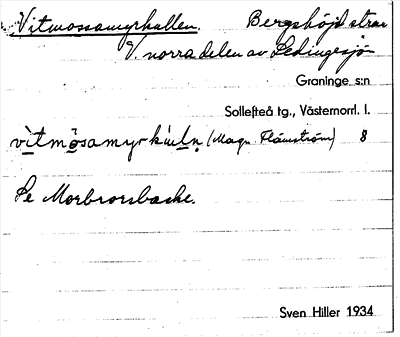 Vitmossamyrkullen. Bergshöjd stran
V. norra delen av Ledingesjö-
Graninge s:n
Sollefteå tg., Västernorrl. l.
vitmòsamyrkuln (Magn. Flämström) 8
Se Morbrorsbacke.
Sven Hiller 1934